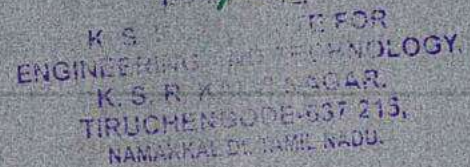 K. S. R. INSTITUTE FOR
ENGINEERING AND TECHNOLOGY,
K. S. R. KALVI NAGAR,
TIRUCHENGODE-637 215,
NAMAKKAL Dt. TAMIL NADU.